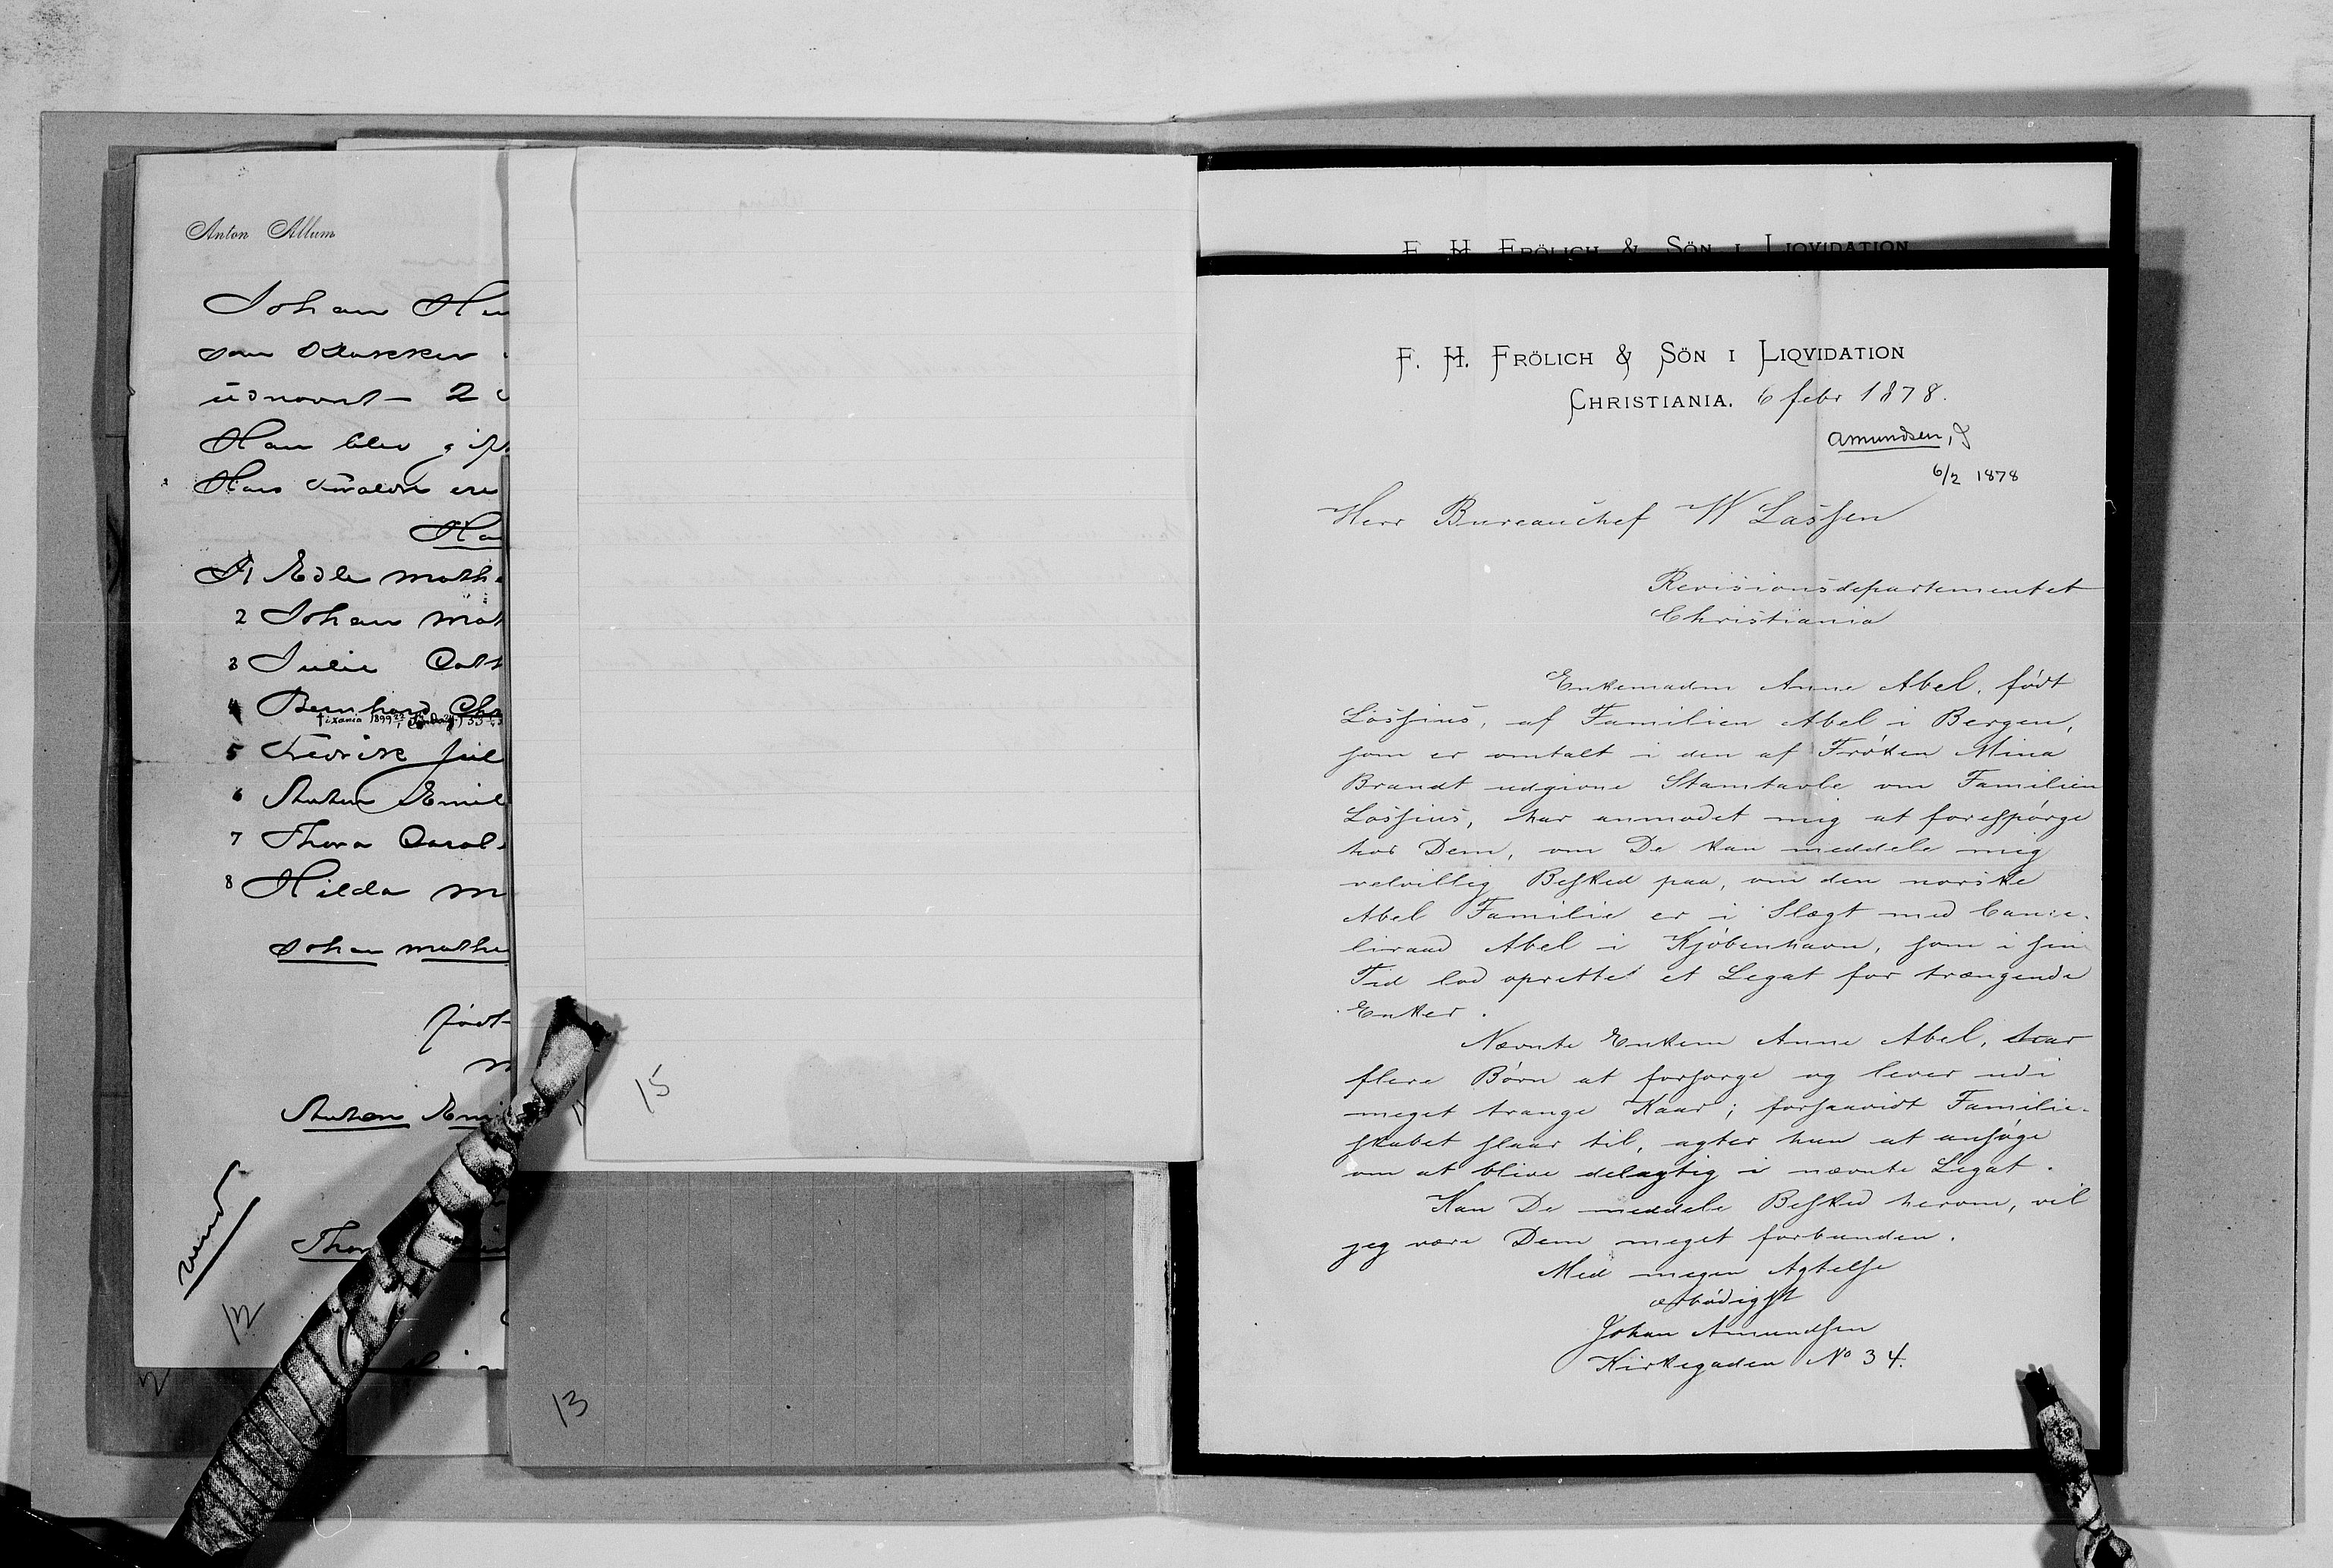 Anton Allum
Johan
som Klokker
udnævnt - 2
Han blev gift
Hans Foraldre ere
1 Edle Math
2 Johan Mat
3 Julie Cath
4 Bernhard Chr
5 Fredrik Jul
6 Anton Emil
7 Thora Carol
8 Hilda M
Johan Mathe
født
Anton Emi
vend
12
2
13
15
F. H. FRÖLICH & SÖN I LIQVIDATION
F. H. FRÖLICH & SÖN I LIQVIDATION
CHRISTIANIA. 6 febr 1878.
Amundsen, J
6/2 1878
Herr Bureauchef W Lassen
Revisionsdepartementet
Christiania
Enkemadm Anne Abel, født
Lossius, af Familien Abel i Bergen,
som er omtalt i den af Frøken Mina
Brandt udgivne Stamtavle om Familien
Lossius, har anmodet mig at forespørge
hos Dem, om De kan meddele mig
velvillig Besked paa, om den norske
Abel Familie er i Slægt med Cance-
liraad Abel i Kjøbenhavn, som i sin
Tid lod oprette et Legat for trængende
Enker.
Nævnte Enkem Anne Abel, har
flere Børn at forsørge og lever udi
meget trange Kaar; forsaavidt Familie-
skabet slaar til, agter hun at ansøge
om at blive delagtig i nævnte Legat.
Kan De meddele Besked herom, vil
jeg være Dem meget forbunden.
Med megen Agtelse
ærbødigst
Johan Amundsen
Kirkegaden No 34.